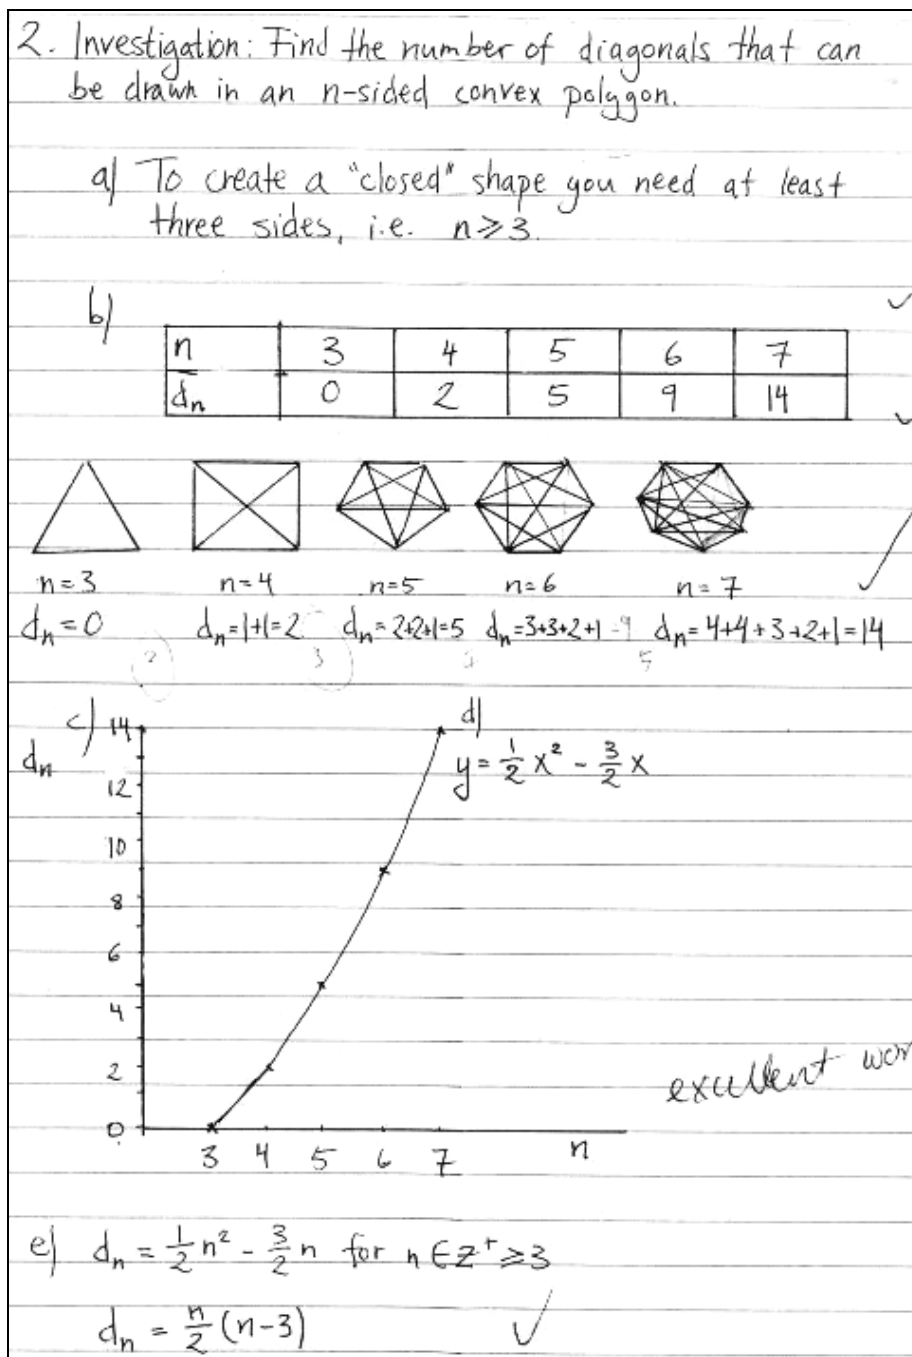 2. Investigation: Find the number of diagonals that can
be drawn in an n-sided convex polygon.
a) To create a "closed" shape you need at least
three sides, i.e. n⩾3.
b)
n 3 4 5 6 7
dₙ 0 2 5 9 14
n=3 n=4 n=5 n=6 n=7
dₙ=0 dₙ=1+1=2 dₙ=2+2+1=5 dₙ=3+3+2+1=9 dₙ=4+4+3+2+1=14
2 3 5
c) 14 d)
dₙ y = 1/2 x² - 3/2 x
12
10
8
6
4
2
excellent
0
3 4 5 6 7 n
e) dₙ = 1/2 n² - 3/2 n for n ∈ Z⁺ ⩾3
dₙ = n/2 (n-3)